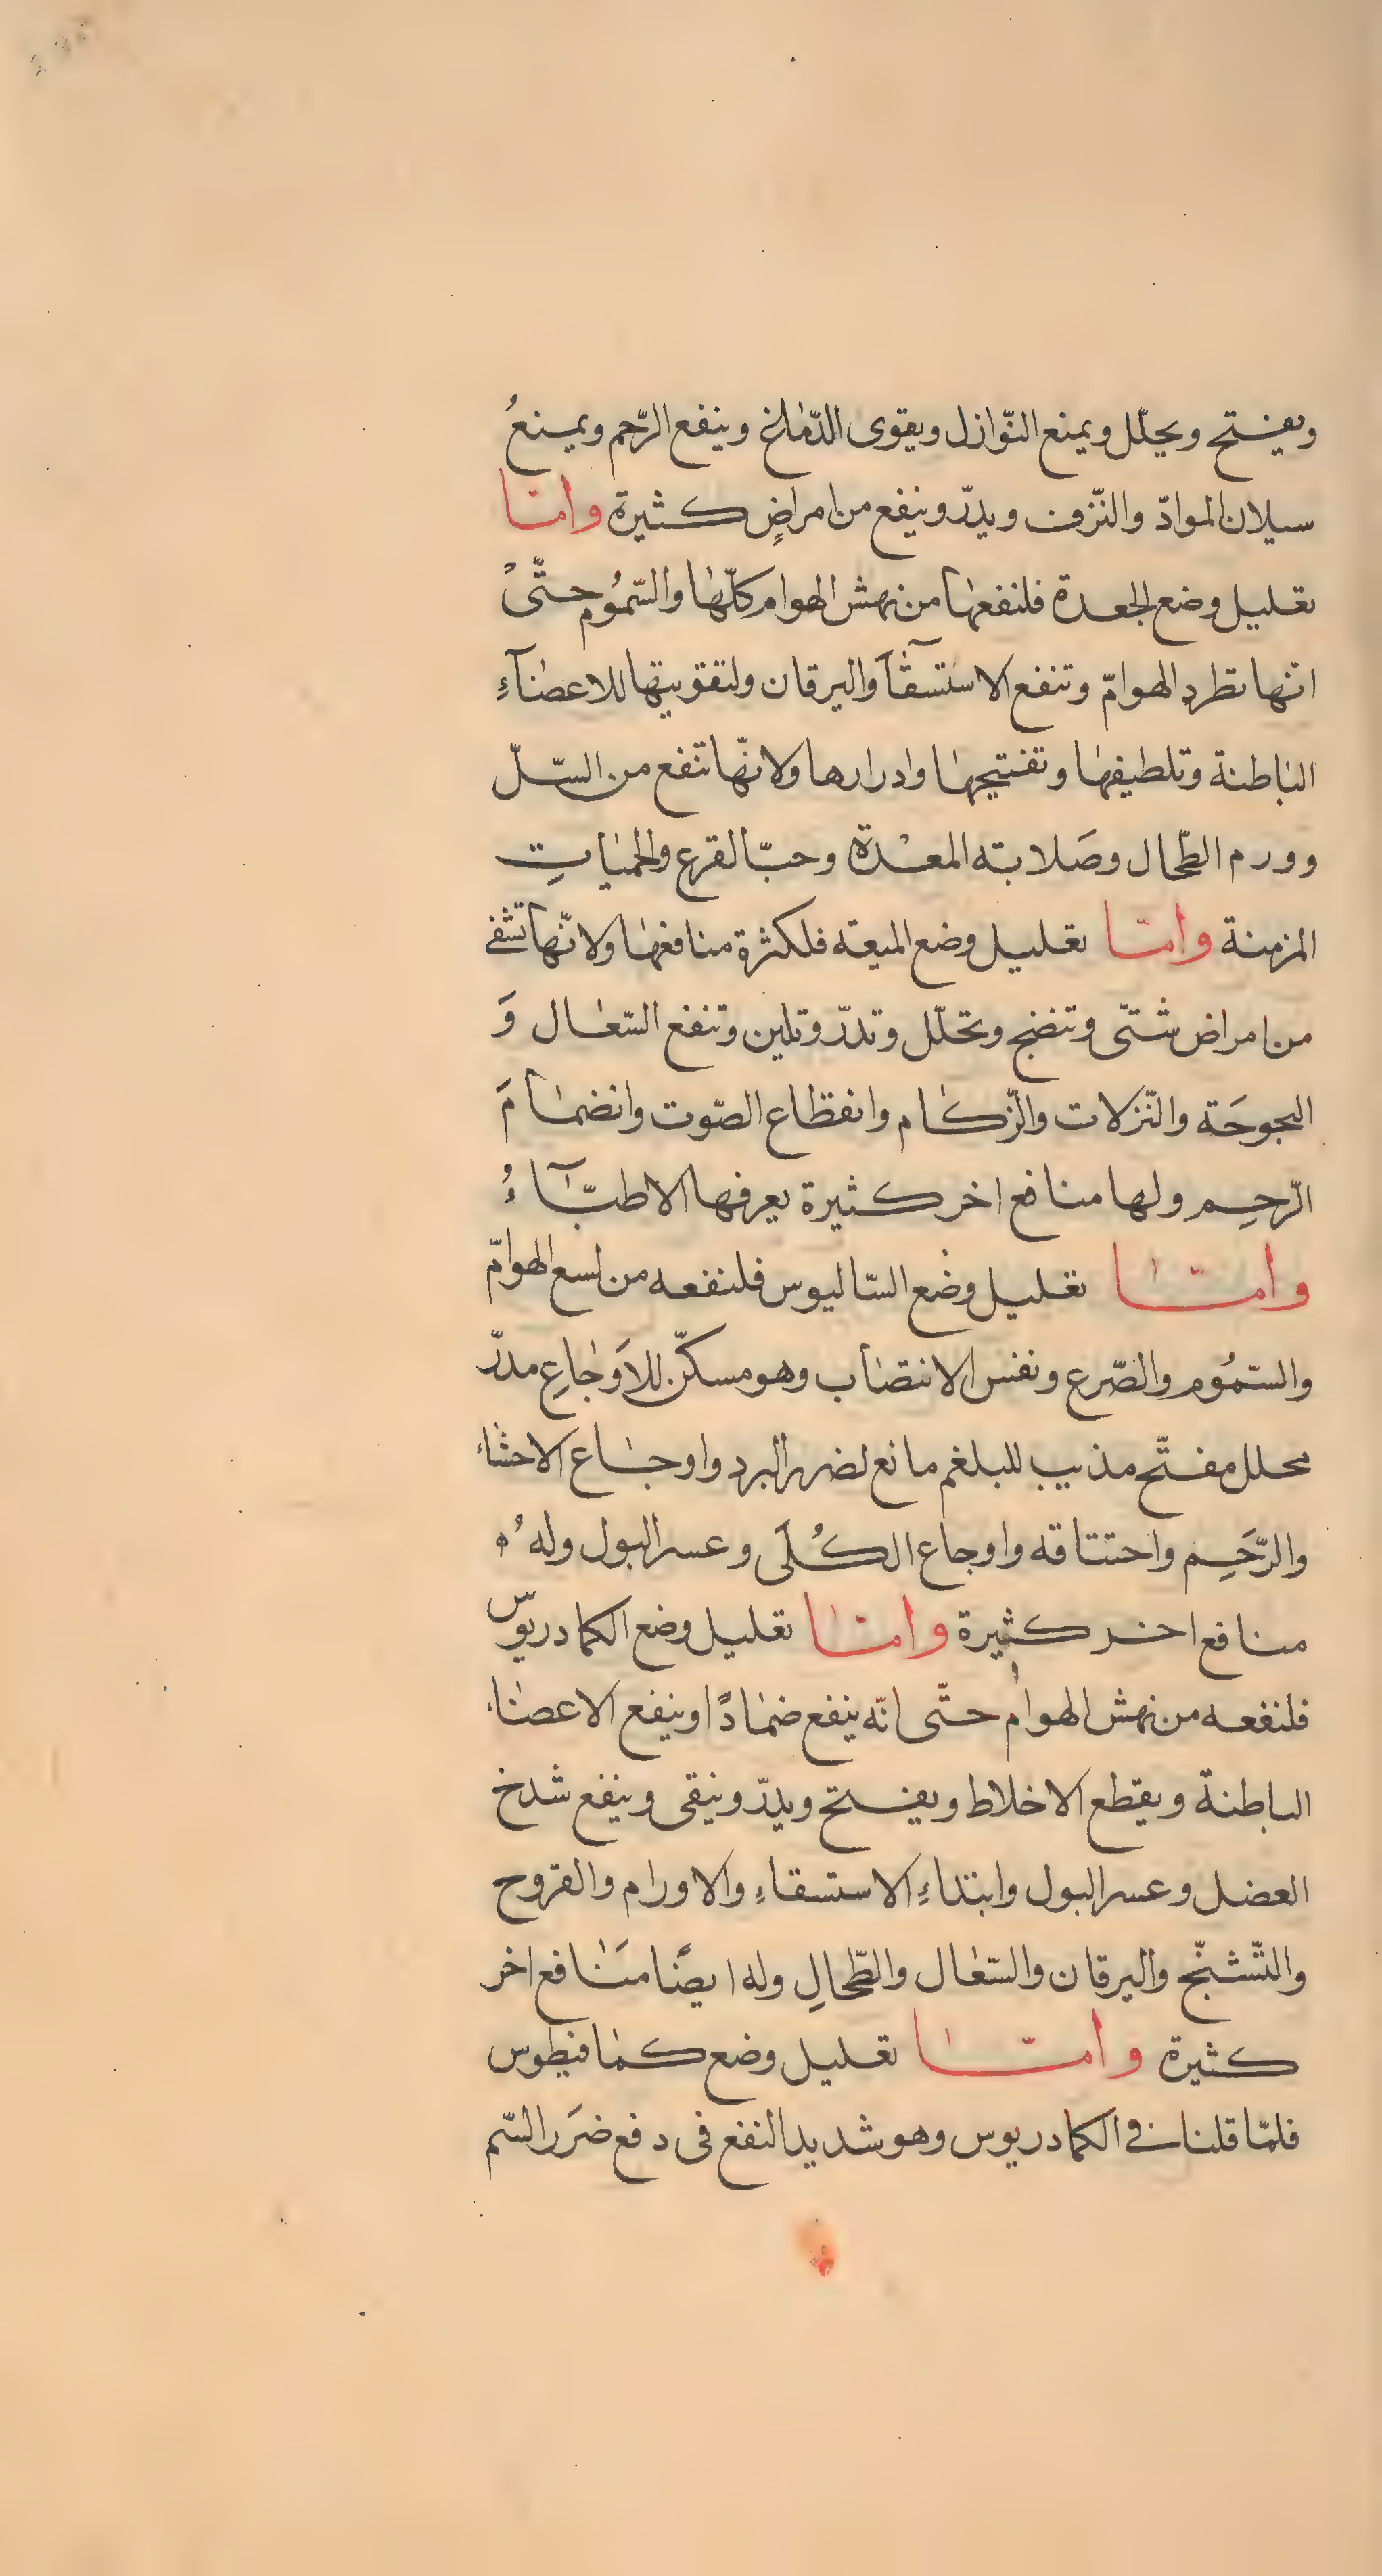 ويفتح ويحلّل ويمنع النّوازل ويقوى الدّماغ وينفع الرّحم ويمنعُ
سيلان الموادّ والنّزف ويدرّ وينفع من امراضٍ كثيرة وامّا
تعليل وضع الجعدة فلنفعها من نهش الهوام كلّها والسّمُوم حتّى
انّها تطرد الهوامّ وتنفع الاستسقآَ واليرقان ولتقويتها للاعضآءِ
الباطنة وتلطيفها وتفتيحها وادرارها ولانّها تنفع من السّلّ
وورم الطّحال وصَلابته المعْدة وحبّ القرع والحمياتِ
المزمنة وامّا تعليل وضع الميعته فلكثرة منافعها ولانّها تشفى
من امراض شتّى وتنضج وتحلّل وتدرّ وتلين وتنفع السّعال وَ
البحوحَة والنّزلات والزّكام وانقطاع الصّوت وانضمامَ
الرّحِم ولها منافع اخر كثيرة يعرفها الاطبّآءُ
وامّا تعليل وضع السّاليوس فلنفعه من لسع الهوامّ
والسّمُوم والصّرع ونفس الانتصاب وهو مسكّن للاَوجاعِ مدرّ
محلل مفتّح مذيب للبلغم مانع لضرر البرد واوجاع الاحشاء
والرّحَِم واختناقه واوجاع الكُلَى وعسر البول ولهُ ه
منافع اخر كثيرة وامّا تعليل وضع الكمادريوس
فلنفعه من نهش الهوام حتّى انّه ينفع ضمادًا وينفع الاعضاء
الباطنة ويقطع الاخلاط ويفتح ويدرّ وينقى وينفع شدخ
العضل وعسر البول وابتداءِ الاستسقاءِ والاورام والقروح
والتّشنّج واليرقان والسّعال والطّحالِ وله ايضًا مَنَافع اخر
كثيرة وامّا تعليل وضع كمافيطوس
فلمّا قلنا فى الكمادريوس وهو شديد النفع فى دفع ضَرَر السّم